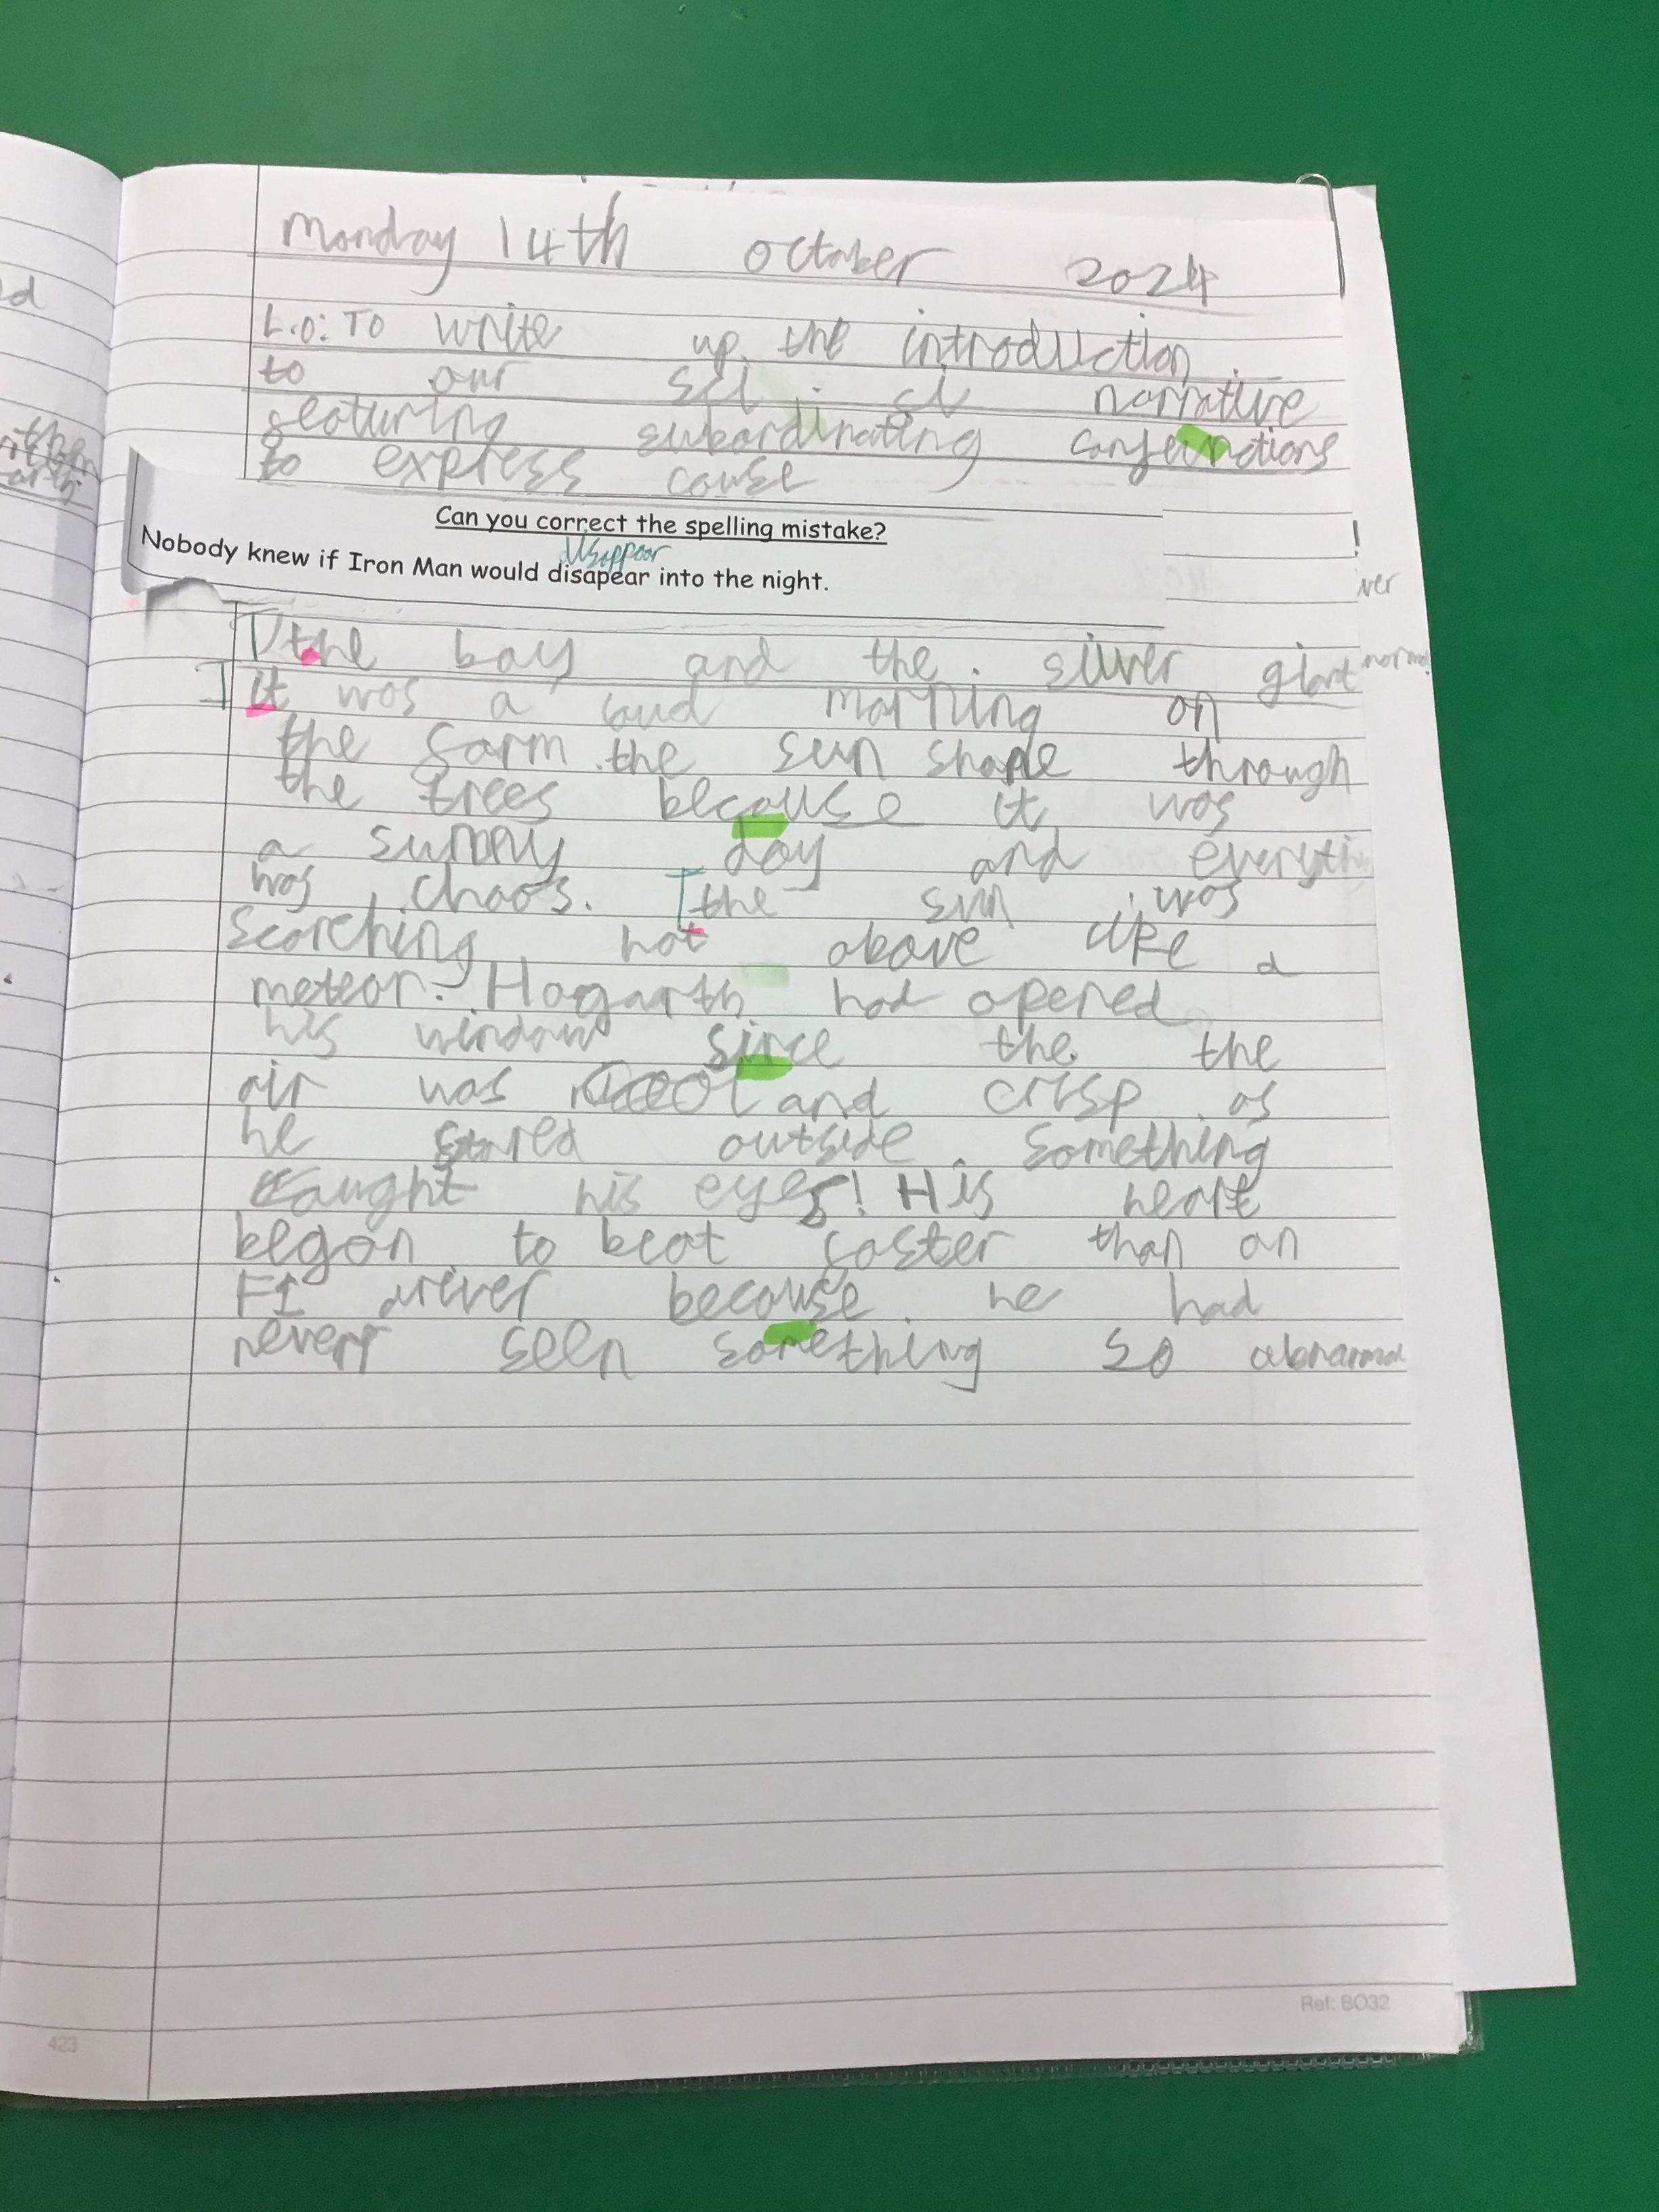 Monday 14th October 2024
L.O: TO write up the introduction
to our sci-fi narrative
featuring subordinating conjunctions
to express cause
Can you correct the spelling mistake?
disappear
Nobody knew if Iron Man would disapear into the night.
!
ver
The boy and the silver giant
It was a morning on
the farm the sun shone through
the trees because it was
a sunny day and everythi
was chaos. The sun was
Scorching hot above like a
meteor. Hogarth had opened
his window since the the
air was cool and crisp as
he stared outside. something
caught his eyes! His heart
began to beat faster than an
F1 driver because he had
never seen something so abnormal
Ref: BO32
423